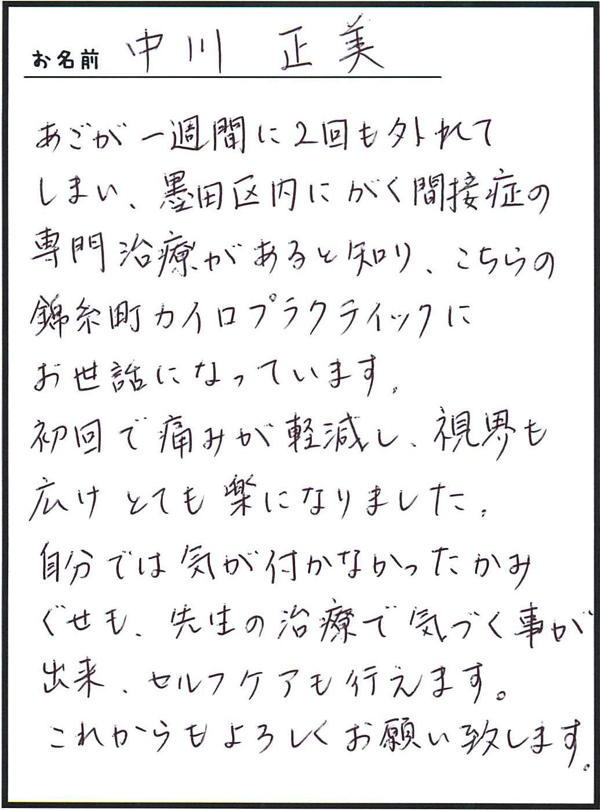 お名前 中川 正美
あごが一週間に2回も外れて
しまい、墨田区内にがく間接症の
専門治療があると知り、こちらの
錦糸町カイロプラクティックに
お世話になっています。
初回で痛みが軽減し、視界も
広けとても楽になりました。
自分では気が付かなかったかみ
ぐせも、先生の治療で気づく事が
出来、セルフケアも行えます。
これからもよろしくお願い致します。